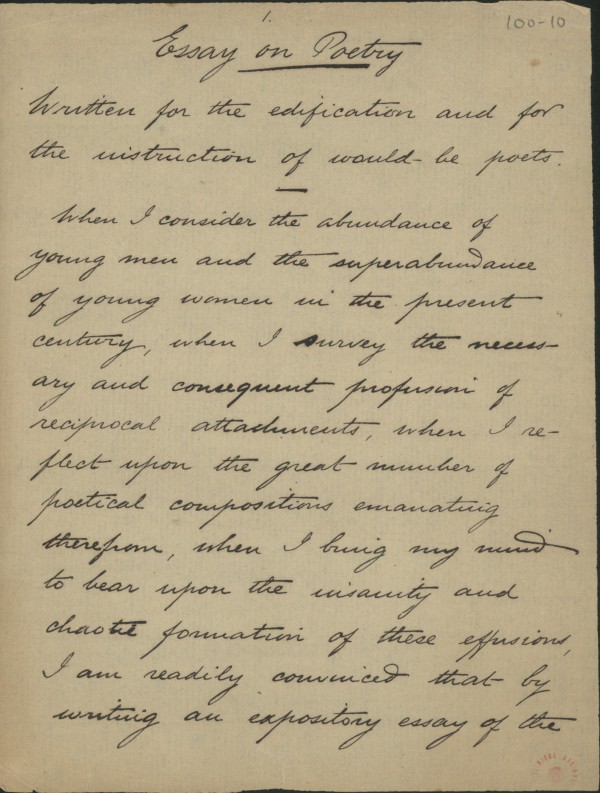 1.
100-10
Essay on Poetry
Written for the edification and for
the instruction of would-be poets.
When I consider the abundance of
young men and the superabundance
of young women in the present
century, when I survey the necess-
ary and consequent profusion of
reciprocal attachments, when I re-
flect upon the great number of
poetical compositions emanating
therefrom, when I bring my mind
to bear upon the insanity and
chaotic formation of these effusions,
I am readily convinced that by
writing an expository essay of the